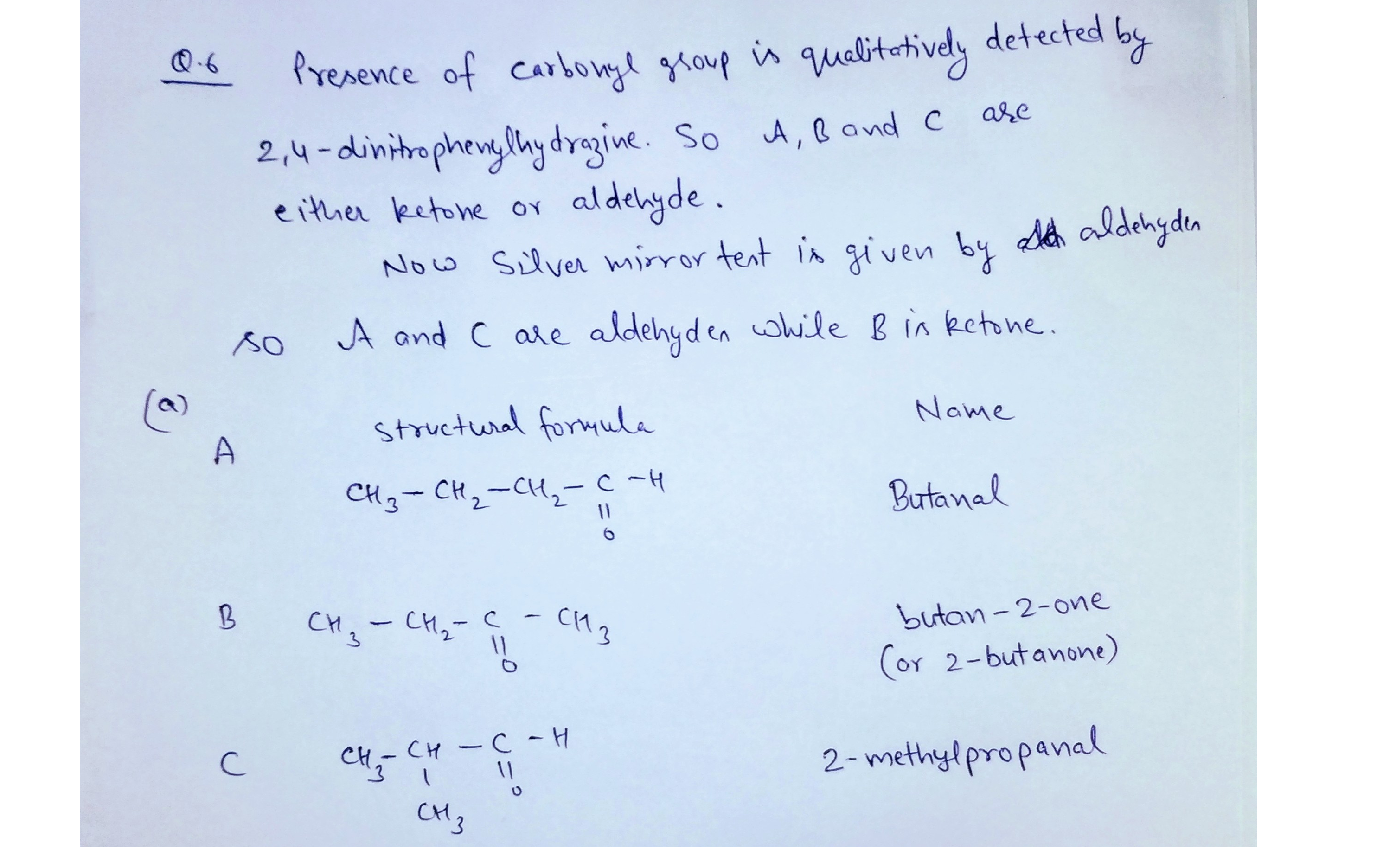 Q.6 Presence of carbonyl group is qualitatively detected by
2,4-dinitrophenylhydrazine. So A, B and C are
either ketone or aldehyde.
Now Silver mirror test is given by aldehydes
so A and C are aldehydes while B is ketone.
(a)
structural formula Name
A
CH3 - CH2 - CH2 - C - H Butanal
||
O
B CH3 - CH2 - C - CH3 butan-2-one
||
O
(or 2-butanone)
C CH3 - CH - C - H 2-methylpropanal
| ||
O
CH3